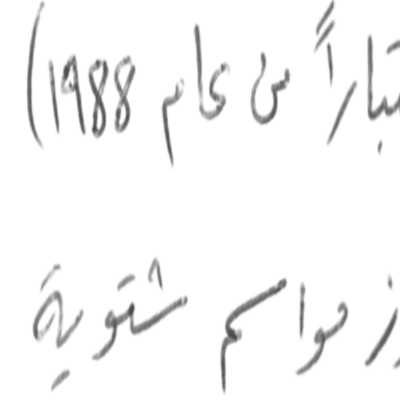 تباراً من عام 1988)
ز مواسم شتوية